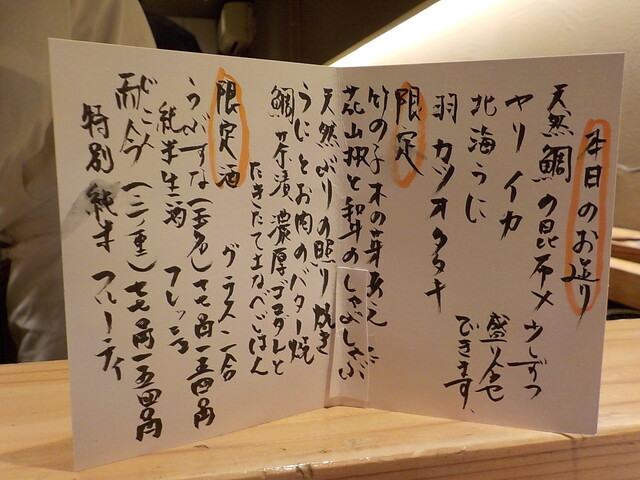 本日のお造り
天然鯛の昆布〆
ヤリイカ
北海うに
羽カツオタタキ
少しずつ
盛り合せ
できます。
限定
竹の子木の芽あえ
花山椒と和牛のしゃぶしゃぶ
天然ぶりの照り焼き
うにとお肉のバター焼
鯛茶漬 濃厚ゴマダレと
たきたて土なべごはん
限定酒
グラス 一合
純米生酒 フレッシュ
特別純米 フルーティ